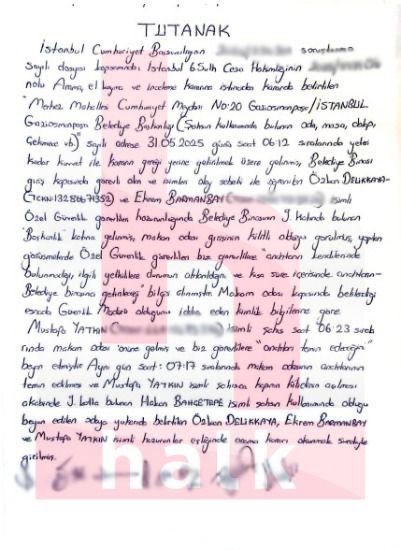 TUTANAK
İstanbul Cumhuriyet Başsavcılığının soruşturma
Sayılı dosyası kapsamında İstanbul 6.Sulh Ceza Hakimliğinin
nolu Arama, el koyma ve inceleme kararına istinaden kararda belirtilen
"Merkez Mahallesi Cumhuriyet Meydanı No:20 Gaziosmanpaşa/İSTANBUL
Gaziosmanpaşa Belediye Başkanlığı (Şahsın kullanımında bulunan oda, masa, dolap,
Çekmece vb.)" sayılı adrese 31.05.2025 günü saat 06:12 sıralarında yeteri
kadar kuvvet ile kararın gereği yerine getirilmek üzere gelinmiş, Belediye Binası
giriş kapısında görevli olan ve isimleri olay sebebi ile öğrenilen Özkan DELİKKAYA-
ve Ekrem BARMANBAY isimli
Özel Güvenlik görevlileri hazurunluğunda Belediye Binasının 7. Katında bulunan
"Başkanlık" katına gelinmiş, makam odası girişinin kilitli olduğu görülmüş, yapılan
görüşmelerde Özel Güvenlik görevlileri biz görevlilere "anahtarın kendilerinde
bulunmadığı, ilgili yetkililere durumun aktarıldığını ve kısa süre içerisinde anahtarın
Belediye binasına getirileceği" bilgisi alınmıştır. Makam odası kapısında beklenildiği
esnada Güvenlik Müdürü olduğunu iddia eden kimlik bilgilerine göre
Mustafa YATKIN isimli şahıs saat 06:23 sırala
rında makam odası önüne gelmiş ve biz görevlilere "anahtarı temin edeceğim"
beyan etmiştir. Aynı gün saat: 07:17 sıralarında makam odasının anahtarının
temin edilmesi ve Mustafa YATKIN isimli şahısca kapının kilidinin açılması
akabinde 7. katta bulunan Hakan BAHÇETEPE isimli şahsın kullanımında olduğu
beyan edilen odaya yukarıda belirtilen Özkan DELİKKAYA, Ekrem BARMANBAY
ve Mustafa YATKIN isimli hazurunlar eşliğinde arama kararı okunmak suretiyle
girilmiş.
halk